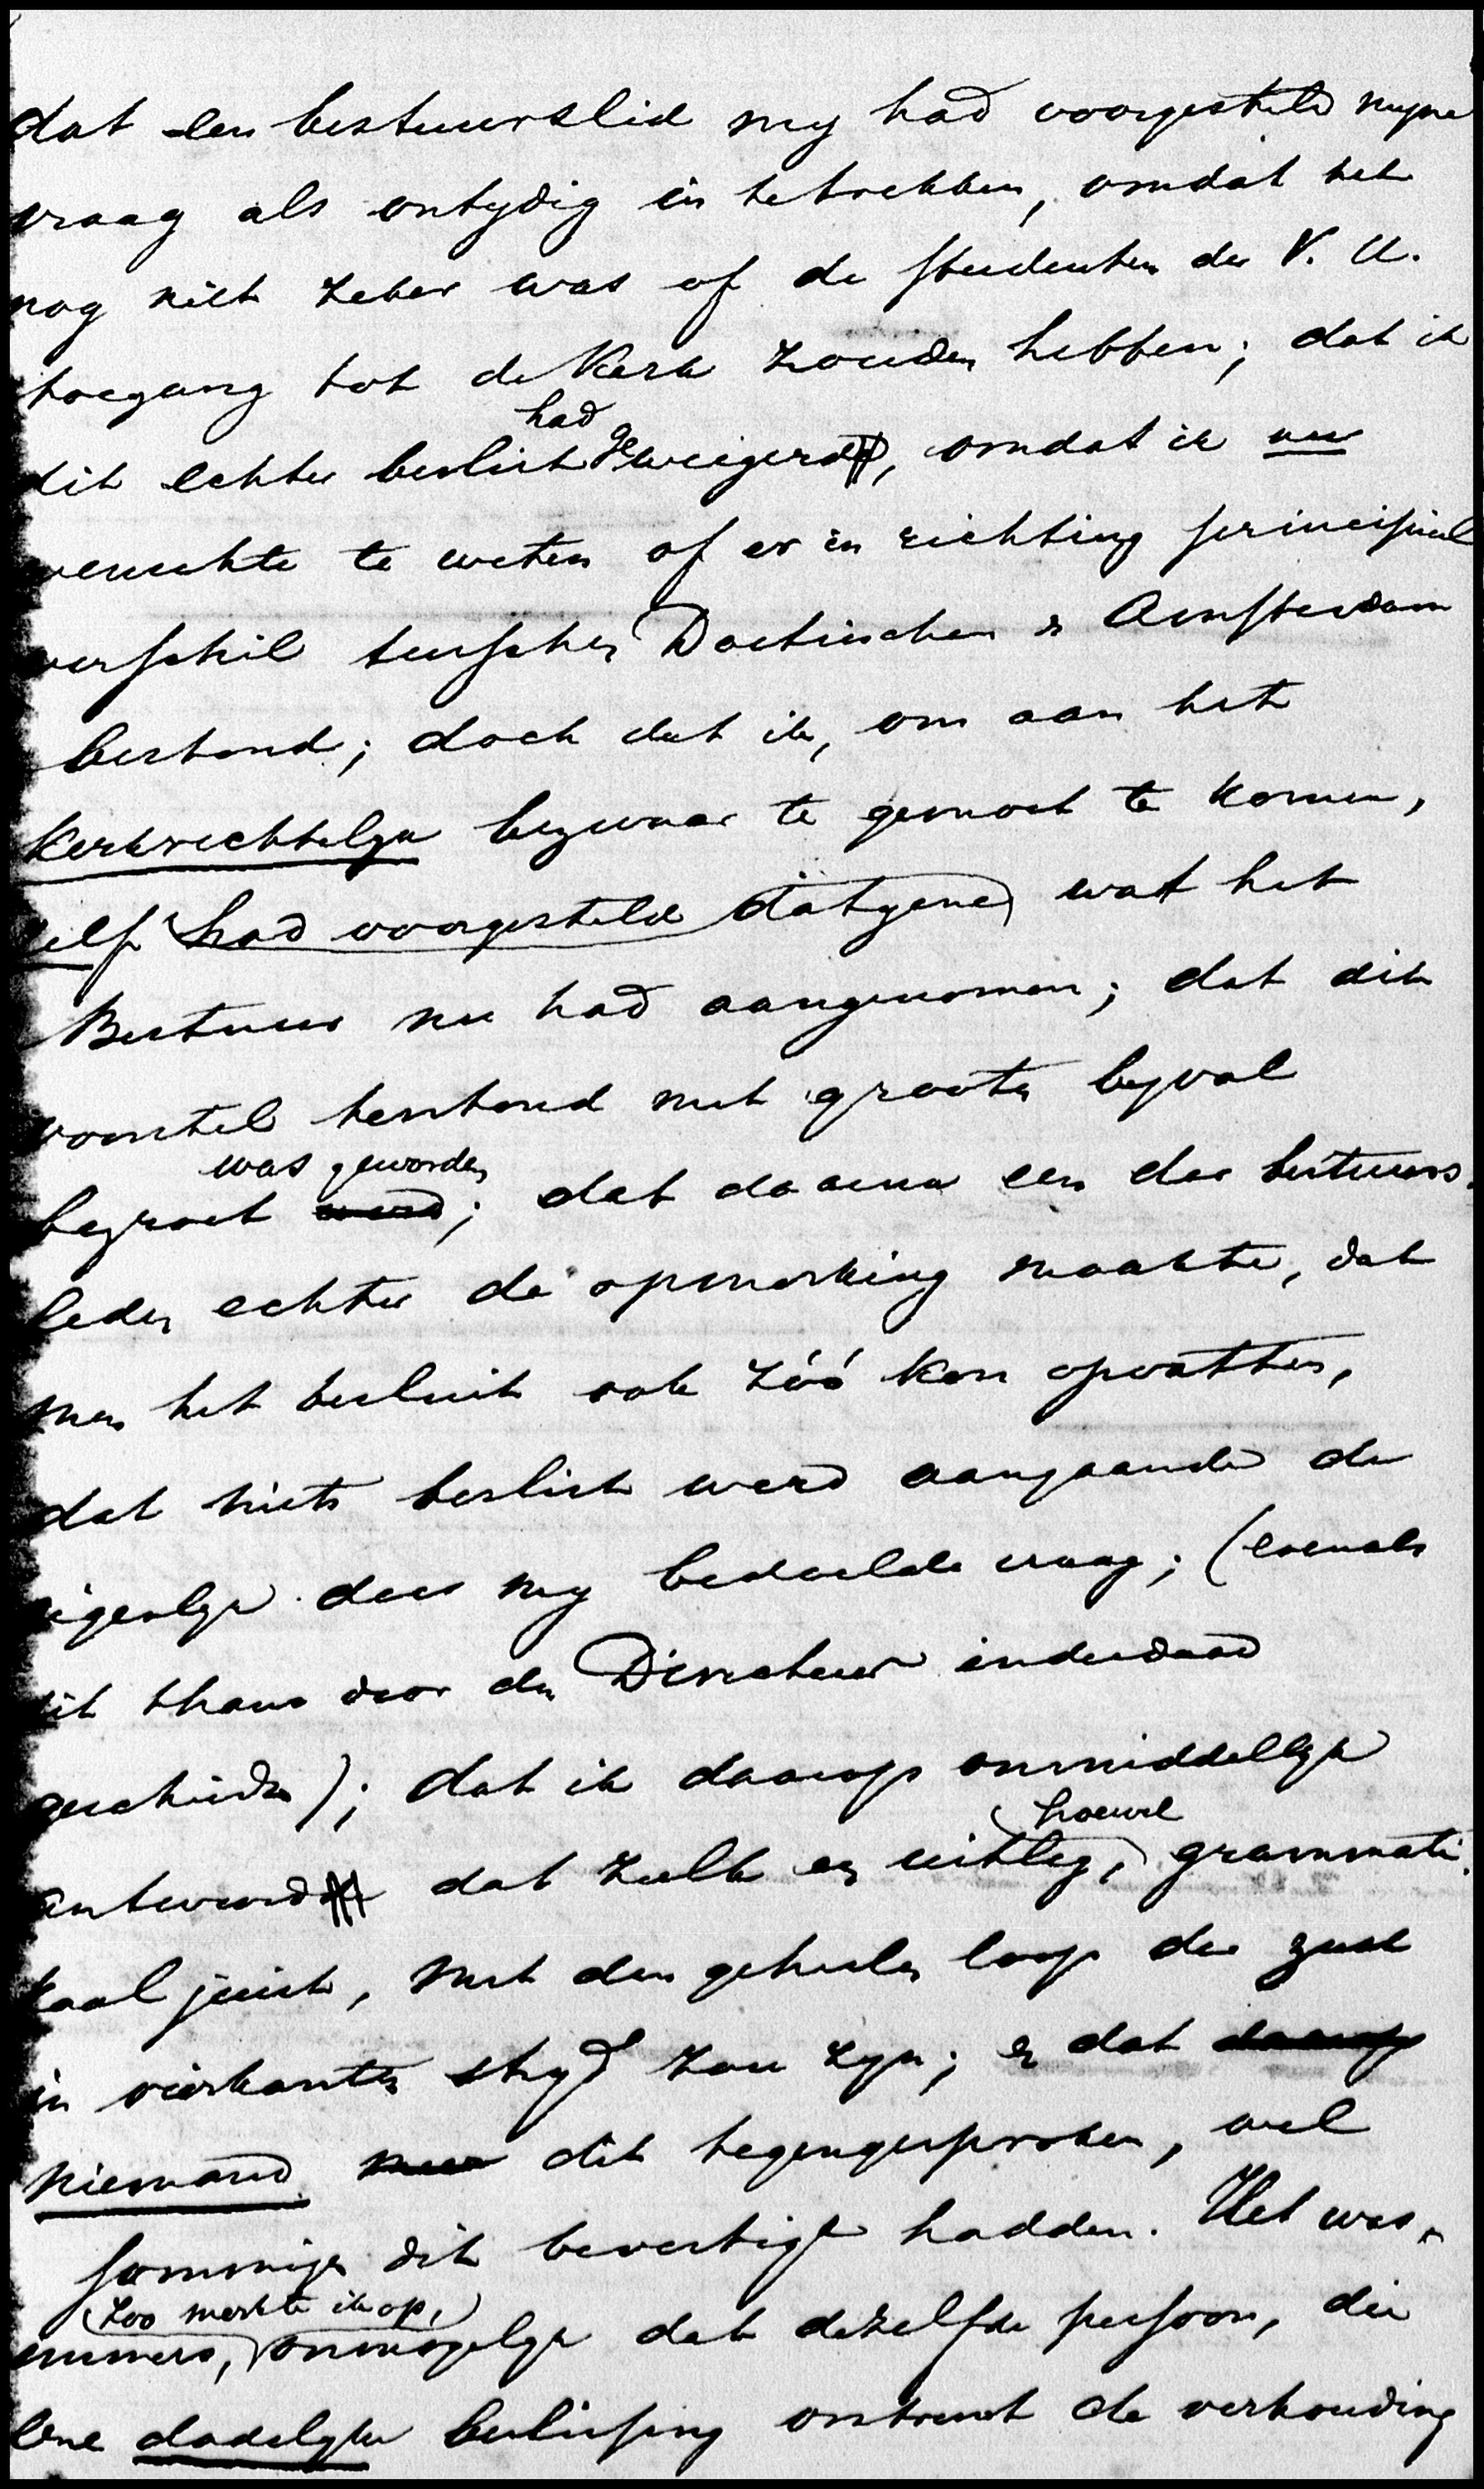 dat een bestuurslid my had voorgesteld myne
vraag als ontydig in te trekken, omdat het
nog niet zeker was of de studenten der V. U.
toegang tot de Kerk zouden hebben; dat ik
dit echter beslist had geweigerd, omdat ik nu
wenschte te weten of er in richting principieel
verschil tusschen Doetinchem & Amsterdam
bestond; doch dat ik, om aan het
Kerkrechtelyk bezwaar te gemoet te komen,
zelf had voorgesteld datgene, wat het
Bestuur nu had aangenomen; dat dit
voorstel terstond met grooten byval
begroet was geworden; dat daarna een der bestuurs-
leden echter de opmerking maakte, dat
men het besluit ook zóó kon opvatten,
dat niets beslist werd aangaande de
eigenlyk door my bedoelde vraag; (evenals
dit thans door den Directeur inderdaad
geschiedt); dat ik daarop onmiddellyk
antwoordde dat zulk een uitleg, hoewel grammati-
kaal juist, met den geheelen loop der zaak
in vierkanten stryd zou zyn; & dat daarop
niemand dit tegengesproken, wel
sommigen dit bevestigd hadden. Het was,
immers, (zoo merkte ik op,) onmogelyk dat dezelfde persoon, die
eene dadelyke beslissing omtrent de verhouding